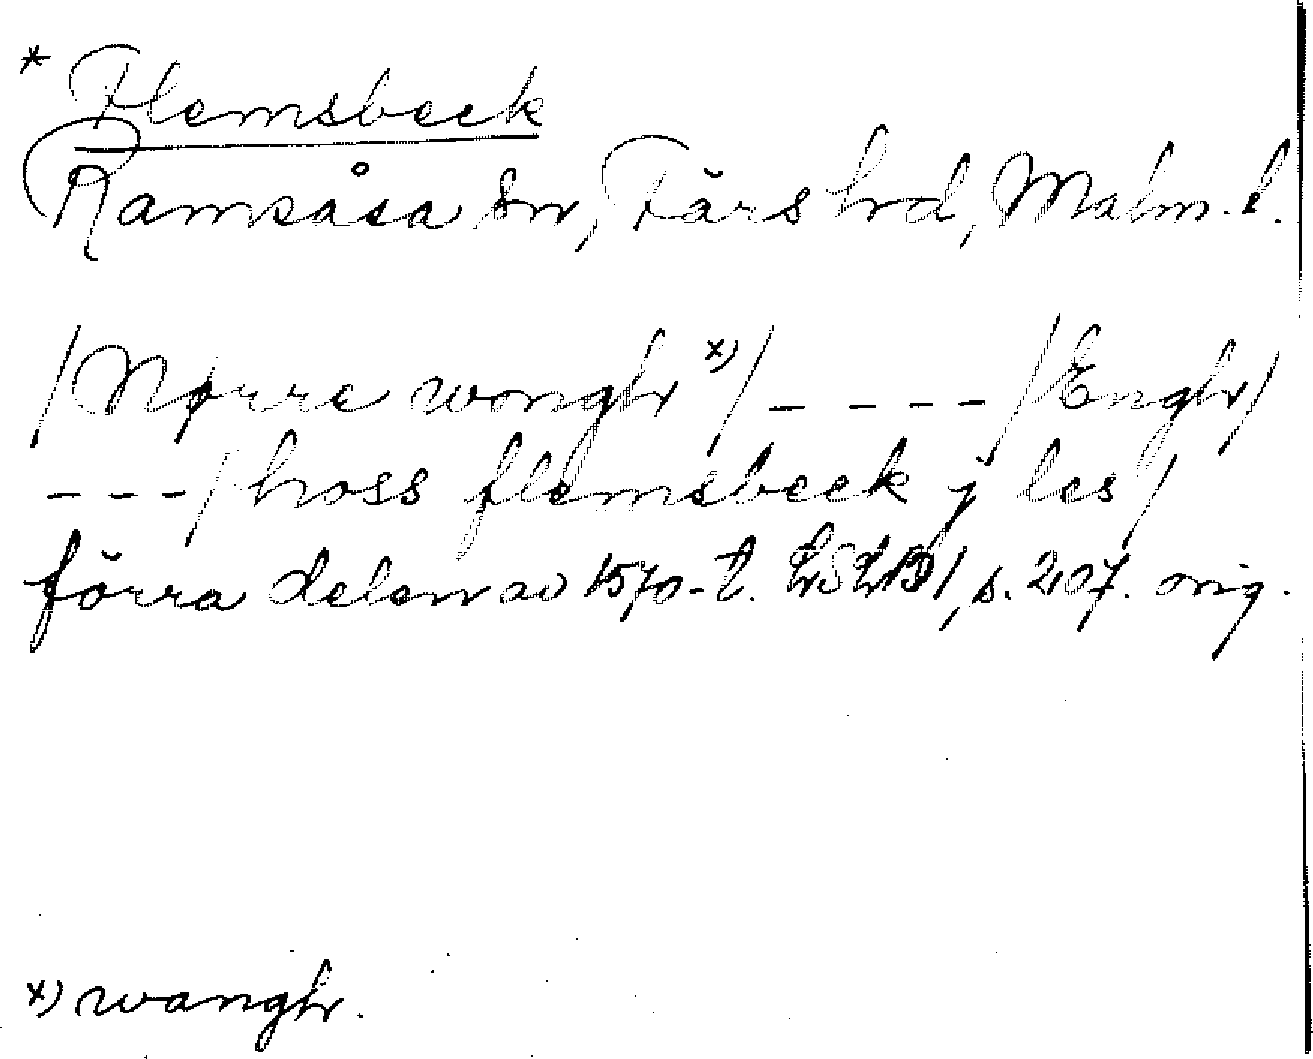 * Flemsbeck
Ramsåsa sn, Färs hrd, Malm. l.
/Nørre wongh x)/ - - - - /Engh/
- - - /hoss flemsbeck j les/
förra delen av 1570-t. LSLB 1, s. 207. orig.
x) wangh.